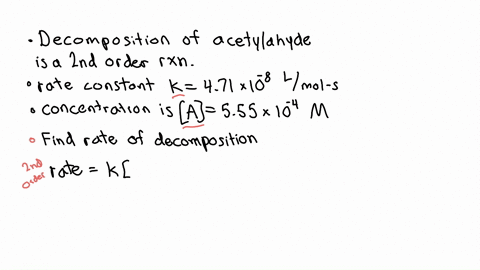 • Decomposition of acetylahyde
is a 2nd order rxn.
• rate constant K = 4.71 × 10⁻⁸ L/mol-s
• concentration is [A] = 5.55 × 10⁻⁴ M
• Find rate of decomposition
2nd order rate = K[